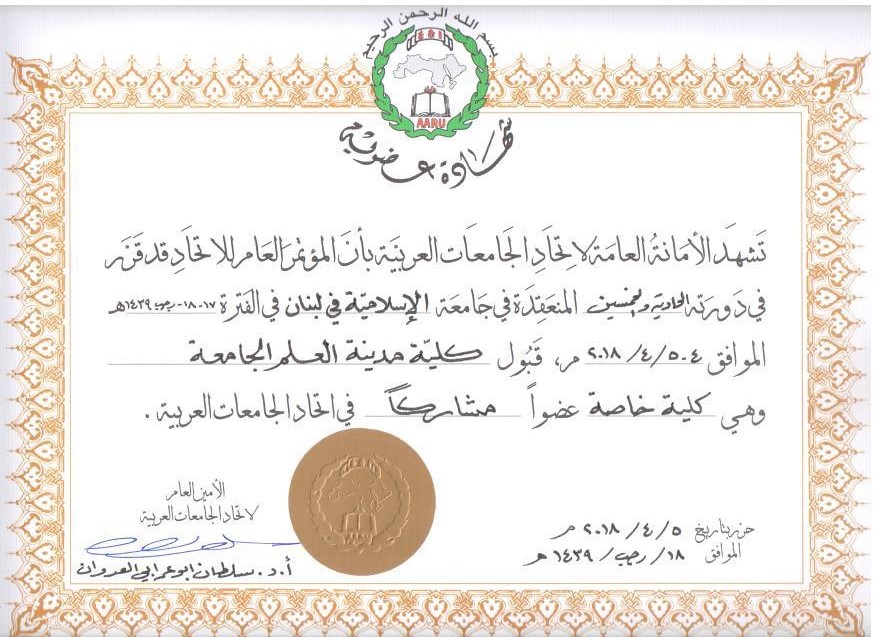 بسم الله الرحمن الرحيم
AARU
شهادة عضوية
تشهد الأمانة العامة لاتحاد الجامعات العربية بأن المؤتمر العام للاتحاد قد قرر
في دورته الحادية والخمسين المنعقدة في جامعة الإسلامية في لبنان في الفترة ١٧-١٨-رجب-١٤٣٩هـ
الموافق ٤-٥/٤/٢٠١٨ م، قبول كلية مدينة العلم الجامعة
وهي كلية خاصة عضواً مشاركاً في اتحاد الجامعات العربية.
حرر بتاريخ ٥/٤/٢٠١٨ م
الموافق ١٨/رجب/١٤٣٩ هـ
الأمين العام
لاتحاد الجامعات العربية
أ.د. سلطان ابو عرابي العدوان